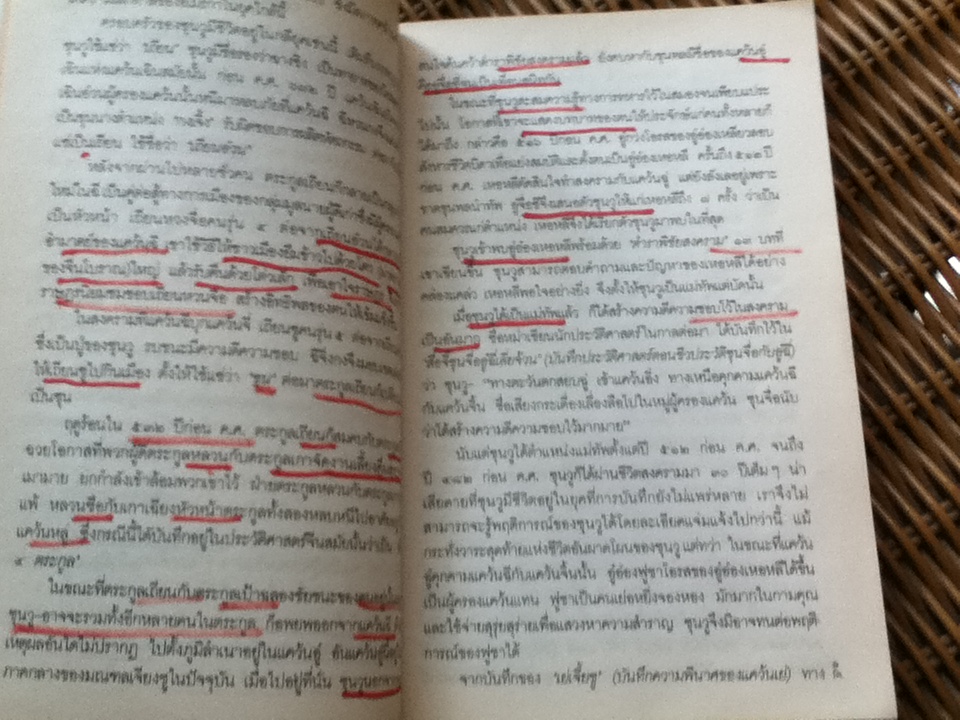 ครอบครัวของซุนวูมีชีวิตอยู่ในกลียุคเช่นนี้
เป็นขุนนางตำแหน่ง
แซ่เป็นเถียน ใช้ชื่อว่า
หลังจากผ่านไปหลายชั่วคน ตระกูลเถียนก็กลายเป็น
ใหม่ในฉี เป็นคู่ต่อสู้ทางการเมืองของกลุ่มมูลนายผู้ดีเก่า
เป็นหัวหน้า เถียนหวนจื่อคนรุ่น ๔ ต่อจากเถียนอ้วน
อำมาตย์ของแคว้นฉี เขาใช้วิธีให้ชาวเมืองยืมข้าวไปด้วยโต่ว
ของจีนโบราณ)ใหญ่ แล้วรับคืนด้วยโต่วเล็ก
ราษฎรนิยมชมชอบเถียนหวนจื่อ สร้างอิทธิพลของตนให้เข้มแข็งขึ้น
ในสงครามที่แคว้นฉีบุกแคว้นจวี่ เถียนซูคนรุ่น ๕ ต่อจาก
ซึ่งเป็นปู่ของซุนวู รบชนะมีความดีความชอบ ฉีจิ่งกงจึงมอบ
ให้เถียนซูไปกินเมือง ตั้งให้ใช้แซ่ว่า "ซุน" ต่อมาตระกูลเถียน
เป็นซุน
ฤดูร้อนใน ๕๓๒ ปีก่อน ค.ศ. ตระกูลเถียนก็สมคบกับตระกูล
ฉวยโอกาสที่พวกผู้ดีตระกูลหลวนกับตระกูลเกาจัดงานเลี้ยง
เมามาย ยกกำลังเข้าล้อมพวกเขาไว้ ฝ่ายตระกูลหลวนกับตระกูล
แพ้ หลวนซือกับเกาเฉียงหัวหน้าตระกูลทั้งสองหลบหนีไป
แคว้นหลู่ ซึ่งกรณีนี้ได้บันทึกอยู่ในประวัติศาสตร์จีนสมัยนั้นว่าเป็น
๔ ตระกูล'
ในขณะที่ตระกูลเถียนกับตระกูลเป้าฉลองชัยชนะของ
ซุนวู-อาจจะรวมทั้งอีกหลายคนในตระกูล ก็อพยพออกจากแคว้นฉี
เหตุผลอันใดไม่ปรากฏ ไปตั้งภูมิลำเนาอยู่ในแคว้นอู๋ อันแคว้นอู๋นี้
ภาคกลางของมณฑลเจียงซูในปัจจุบัน เมื่อไปอยู่ที่นั่น ซุนวู
สนใจค้นคว้าตำราพิชัยสงครามแล้ว ยังคบหากับขุนพลมีชื่อของแคว้นอู๋
คืออู่จื่อซีจนเป็นเพื่อนสนิทกัน
ในขณะที่ซุนวูสะสมความรู้ทางการทหารไว้ในสมองจนเพียบแประ
ไปนั้น โอกาสที่เขาจะแสดงบทบาทของตนให้ประจักษ์แก่คนทั้งหลายก็
ได้มาถึง กล่าวคือ ๕๑๖ ปีก่อน ค.ศ. อู๋กวงโอรสของอู๋อ๋องเหลียวลอบ
สังหารชีวิตบิดาเพื่อแย่งสมบัติและตั้งตนเป็นอู๋อ๋องเหอหลี ครั้นถึง ๕๑๒ ปี
ก่อน ค.ศ. เหอหลีตัดสินใจทำสงครามกับแคว้นฉู่ แต่ยังลังเลอยู่เพราะ
ขาดขุนพลนำทัพ อู่จื่อซีจึงเสนอตัวซุนวูให้แก่เหอหลีถึง ๗ ครั้ง ว่าเป็น
คนสมควรแก่ตำแหน่ง เหอหลีจึงได้เรียกตัวซุนวูมาพบในที่สุด
ซุนวูเข้าพบอู๋อ๋องเหอหลีพร้อมด้วย 'ตำราพิชัยสงคราม' ๑๓ บทที่
เขาเขียนขึ้น ซุนวูสามารถตอบคำถามและปัญหาของเหอหลีได้อย่าง
คล่องแคล่ว เหอหลีพอใจอย่างยิ่ง จึงตั้งให้ซุนวูเป็นแม่ทัพแต่บัดนั้น
เมื่อซุนวูได้เป็นแม่ทัพแล้ว ก็ได้สร้างความดีความชอบไว้ในสงคราม
เป็นอันมาก ซือหม่าเชียนนักประวัติศาสตร์ในกาลต่อมา ได้บันทึกไว้ใน
(บันทึกประวัติศาสตร์ตอนชีวประวัติซุนจื่อกับอู๋ฉี)
ว่า ซุนวู- "ทางตะวันตกสยบฉู่ เข้าแคว้นอิ่ง ทางเหนือคุกคามแคว้นฉี
กับแคว้นจิ้น ชื่อเสียงกระเดื่องเลื่องลือไปในหมู่ผู้ครองแคว้น ซุนจื่อนับ
ว่าได้สร้างความดีความชอบไว้มากมาย"
นับแต่ซุนวูได้ตำแหน่งแม่ทัพตั้งแต่ปี ๕๑๒ ก่อน ค.ศ. จนถึง
ปี ๔๘๒ ก่อน ค.ศ. ซุนวูก็ได้ผ่านชีวิตสงครามมา ๓๐ ปีเต็มๆ น่า
เสียดายที่ซุนวูมีชีวิตอยู่ในยุคที่การบันทึกยังไม่แพร่หลาย เราจึงไม่
สามารถจะรู้พฤติการณ์ของซุนวูได้โดยละเอียดแจ่มแจ้งไปกว่านี้ แม้
กระทั่งวาระสุดท้ายแห่งชีวิตอันผาดโผนของซุนวู แต่ทว่า ในขณะที่แคว้น
อู๋คุกคามแคว้นฉีกับแคว้นจิ้นนั้น อู๋อ๋องฟูซาโอรสของอู๋อ๋องเหอหลีได้ขึ้น
เป็นผู้ครองแคว้นแทน ฟูซาเป็นคนเย่อหยิ่งจองหอง มักมากในกามคุณ
และใช้จ่ายสุรุ่ยสุร่ายเพื่อแสวงหาความสำราญ ซุนวูจึงมิอาจทนต่อพฤติ-
การณ์ของฟูซาได้
จากบันทึกของ 'เย่เจี๋ยซู' (บันทึกความพินาศของแคว้นเย่) ทาง